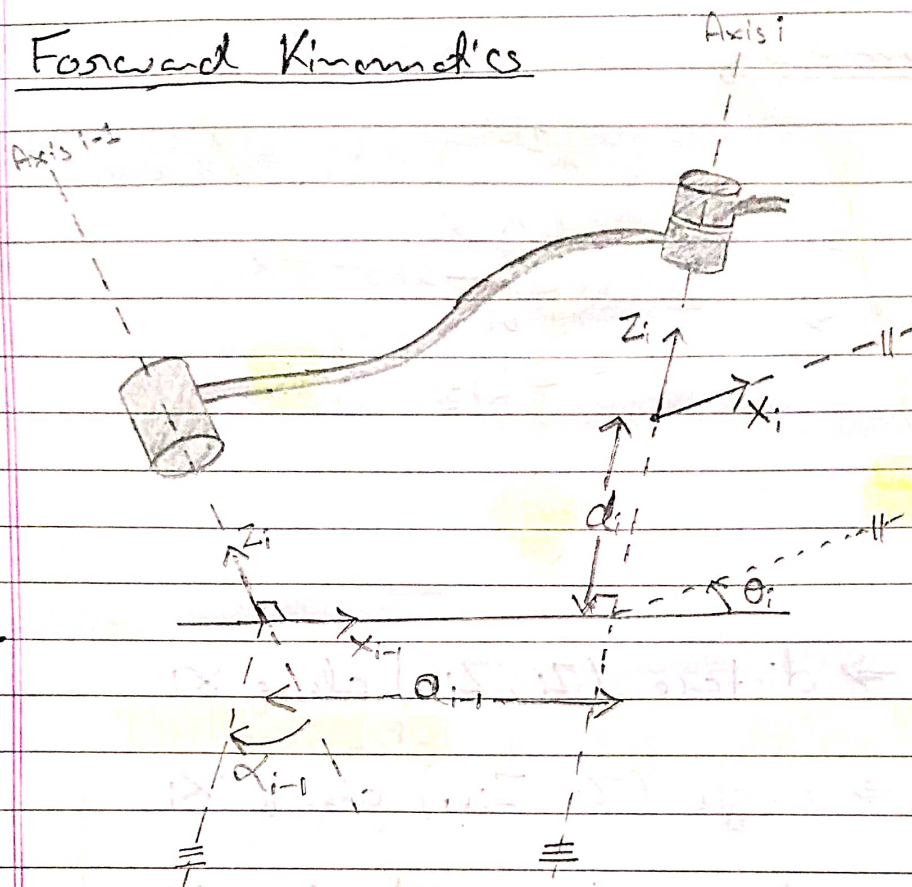 Forward Kinematics
Axis i
Axis i-1
Zi
Xi
di
Zi
θi
Xi-1
ai-1
αi-1